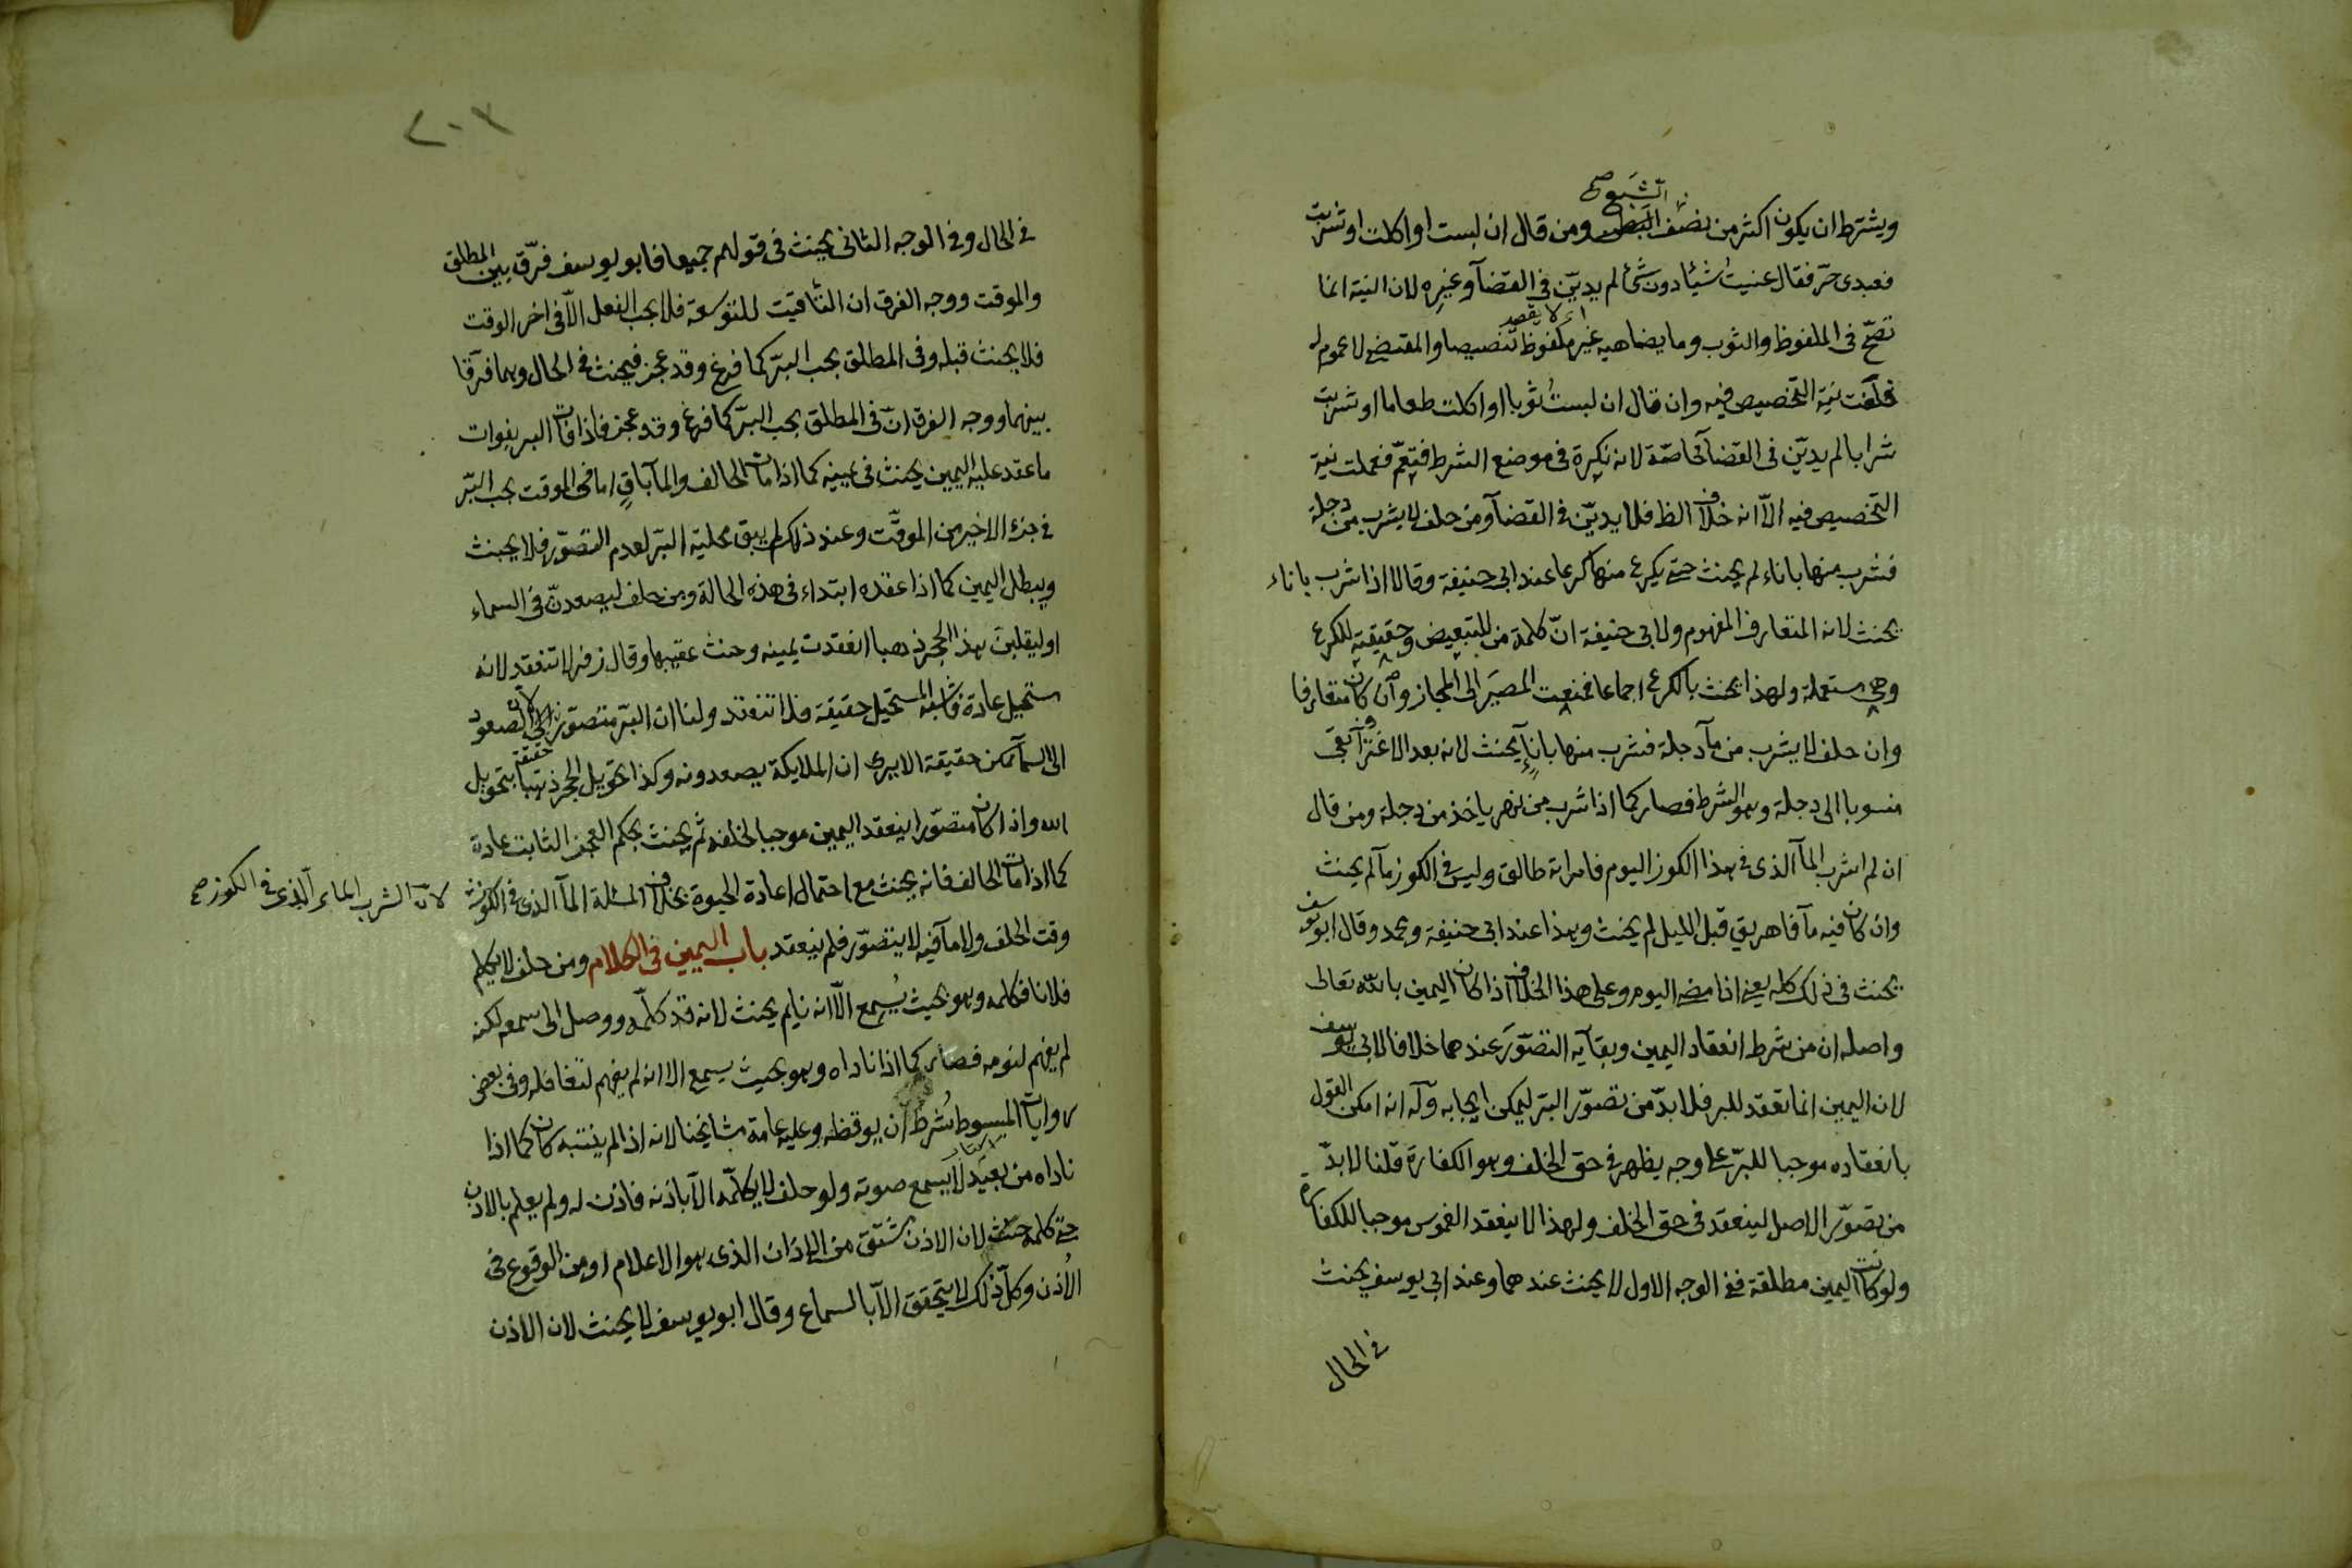 ويشترط ان يكون اكثر من نصف البطن ومن قال ان لبست او اكلت او شربت
الشبع صح
فعبدى حرّ فقال عنيت شيئا دون شئ لم يديّن فى القضآ وغيره لان النية انما
تصحّ فى الملفوظ والثوب وما يضاهيه غير ملفوظ تنصيصا والمقتضى لا عموم له
فلغت نية التخصيص فيه وان قال ان لبست ثوبا او اكلت طعاما او شربت
شرابا لم يديّن فى القضآ خاصّة لانه نكرة فى موضع الشرط فتعمّ فعملت نية
التخصيص فيه الّا انه خلاف الظ فلا يديّن فى القضآ ومن حلف لا يشرب من دجلة
فشرب منها باناء لم يحنث حتى يكرع منها كرعا عند ابى حنيفة وقالا اذا شرب باناء
يحنث لانه المتعارف المفهوم ولابى حنيفة انّ كلمة من للتبعيض وحقيقة للكرع
وهى مستعملة ولهذا يحنث بالكرع اجماعا فمنعت المصير الى المجاز وان كان متعارفا
وان حلف لا يشرب من مآ دجلة فشرب منها باناء يحنث لانه بعد الاغتراف بقى
منسوبا الى دجلة وهو الشرط فصار كما اذا شرب من نهر ياخذ من دجلة ومن قال
ان لم اشرب المآ الذى فى هذا الكوز اليوم فامراته طالق وليس فى الكوز مآ لم يحنث
وان كان فيه مآ فاهريق قبل الليل لم يحنث وهذا عند ابى حنيفة ومحمد وقال ابو يوسف
يحنث فى ذلك كله يعنى اذا مضى اليوم وعلى هذا الخلاف اذا كان اليمين بالله تعالى
واصله ان من شرط انعقاد اليمين وبقآيه التصوّر عندهما خلافا لابى يوسف
لان اليمين انما تعقد للبر فلا بدّ من تصوّر البرّ ليمكن ايجابه وله انه امكن القول
بانعقاده موجبا للبرّ على وجه يظهر فى حق الخلف وهو الكفارة قلنا لا بدّ
من تصوّر الاصل لينعقد فى حق الخلف ولهذا لا ينعقد الغموس موجبا للكفارة
ولو كانت اليمين مطلقة ففى الوجه الاول لا يحنث عندهما وعند ابى يوسف يحنث
فى الحال
٢٠٢
فى الحال وفى الوجه الثانى يحنث فى قولهم جميعا فابو يوسف فرّق بين المطلق
والموقت ووجه الفرق ان التاقيت للتوسعة فلا يجب الفعل الّا فى اخر الوقت
فلا يحنث قبله وفى المطلق يجب البرّ كما فرغ وقد عجز فيحنث فى الحال وهما فرّقا
بينهما ووجه الفرق انّ فى المطلق يجب البرّ كما فرغ وقد عجز فاذا فات البر بفوات
ما عقد عليه اليمين يحنث فى يمينه كما اذا مات الحالف والمآ باقٍ اما فى الموقت يجب البرّ
فى جزء الاخير من الموقّت وعند ذلك لم يبق محلية البرّ لعدم التصوّر فلا يحنث
ويبطل اليمين كما اذا عقده ابتداء فى هذه الحالة ومن حلف ليصعدنّ فى السماء
او ليقلبن هذا الحجر ذهبا انعقدت يمينه وحنث عقيبها وقال زفر لا تنعقد لانه
مستحيل عادة فاشبه المستحيل حقيقة فلا تنعقد ولنا ان البرّ متصوّر لان الصعود
الى السمآ ممكن حقيقة الا يرى ان الملايكة يصعدونه وكذا تحويل الحجر ذهبا بتحويل
حقيقة
الله واذا كان متصوّرا ينعقد اليمين موجبا لخلفه ثم يحنث بحكم العجز الثابت عادة
كما اذا مات الحالف فانه يحنث مع احتمال اعادة الحيوة بخلاف المسئلة المآ الذى فى الكوز
لانّ الشرب الماء الذى فى الكوز صح
وقت الحلف ولا مآ فيه لا يتصوّر فلم ينعقد باب اليمين فى الكلام ومن حلف لا يكلم
فلانا فكلمه وهو بحيث يُسمع الّا انه نايم يحنث لانه قد كلّمه ووصل الى سمعه لكنه
لم يفهم لنومه فصار كما اذا ناداه وهو بحيث يسمع الا انه لم يفهم لتغافله وفى بعض
روايات المبسوط شُرط ان يوقظه وعليه عامة مشايخنا لانه اذا لم ينتبه كان كما اذا
ناداه من بعيد لا يسمع صوته ولو حلف لا يكلّمه الّا باذنه فاذن له ولم يعلم بالاذن
حتى كلمه حنث لان الاذن مشتق من الاذان الذى هو الاعلام او من الوقوع فى
الاُذن وكلّ ذلك لا يتحقق الّا بالسماع وقال ابو يوسف لا يحنث لان الاذن